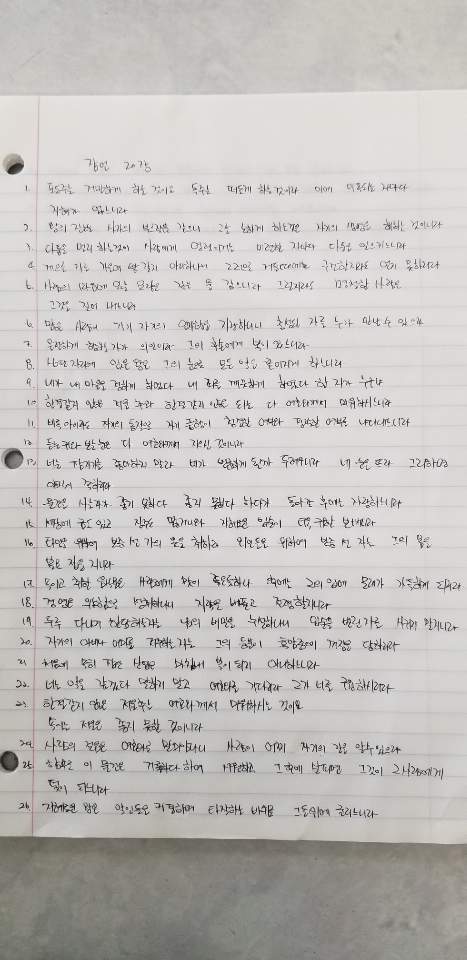 잠언 20장
1. 포도주는 거만하게 하는 것이요 독주는 떠들게 하는것이라 이에 미혹되는 자마다
지혜가 없느니라
2. 왕의 진노는 사자의 부르짖음 같으니 그를 노하게 하는것은 자기의 생명을 해하는 것이니라
3. 다툼을 멀리 하는것이 사람에게 영광이거늘 미련한 자마다 다툼을 일으키느니라
4. 게으른 자는 가을에 밭 갈지 아니하나니 그러므로 거둘때에는 구걸할지라도 얻지 못하리라
5. 사람의 마음에 있는 모략은 깊은 물 같으니라 그럴지라도 명철한 사람은
그것을 길어 내느니라
6. 많은 사람이 각기 자기의 인자함을 자랑하나니 충성된 자를 누가 만날 수 있으랴
7. 온전하게 행하는 자가 의인이라 그의 후손에게 복이 있느니라
8. 심판 자리에 앉은 왕은 그의 눈으로 모든 악을 흩어지게 하느니라
9. 내가 내 마음을 정하게 하였다 내 죄를 깨끗하게 하였다 할 자가 누구냐
10. 한결같지 않은 저울 추와 한결같지 않은 되는 다 여호와께서 미워하시느니라
11. 비록 아이라도 자기의 동작으로 자기 품행이 청결한 여부와 정직한 여부를 나타내느니라
12. 듣는 귀와 보는 눈은 다 여호와께서 지으신 것이니라
13. 너는 잠자기를 좋아하지 말라 네가 빈궁하게 될까 두려우니라 네 눈을 뜨라 그리하면
양식이 족하리라
14. 물건을 사는자가 좋지 못하다 좋지 못하다 하다가 돌아간 후에는 자랑하느니라
15. 세상에 금도 있고 진주도 많거니와 지혜로운 입술이 더욱 귀한 보배니라
16. 타인을 위하여 보증 선 자의 옷을 취하라 외인들을 위하여 보증 선 자는 그의 몸을
볼모 잡을 지니라
17. 속이고 취한 음식물은 사람에게 맛이 좋은듯하나 후에는 그의 입에 모래가 가득하게 되리라
18. 경영은 의논함으로 성취하나니 지략을 베풀고 전쟁할지니라
19. 두루 다니며 한담하는자는 남의 비밀을 누설하나니 입술을 벌린 자를 사귀지 말지니라
20. 자기의 아비나 어미를 저주하는 자는 그의 등불이 흑암중에 꺼짐을 당하리라
21. 처음에 속히 잡은 산업은 마침내 복이 되지 아니하느니라
22. 너는 악을 갚겠다 말하지 말고 여호와를 기다리라 그가 너를 구원하시리라
23. 한결같지 않은 저울추는 여호와께서 미워하시는 것이요
속이는 저울은 좋지 못한 것이니라
24. 사람의 걸음은 여호와로 말미암나니 사람이 어찌 자기의 길을 알 수 있으랴
25. 함부로 이 물건은 거룩하다 하여 서원하고 그 후에 살피면 그것이 그 사람에게
덫이 되느니라
26. 지혜로운 왕은 악인들을 키질하며 타작하는 바퀴를 그들위에 굴리느니라